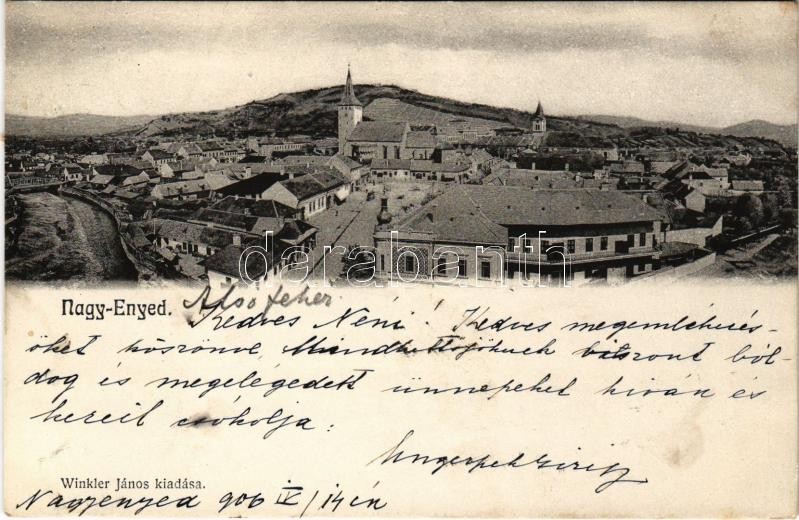 darabanth
Nagy-Enyed.
Alsó fehér
Kedves Néni! Kedves megemlékezés-
öket köszönve, Mindkettőjöknek viszont bol-
dog és megelégedett ünnepeket kíván és
kezeit csókolja:
Winkler János kiadása.
Nagyenyed 906 IV/14 én